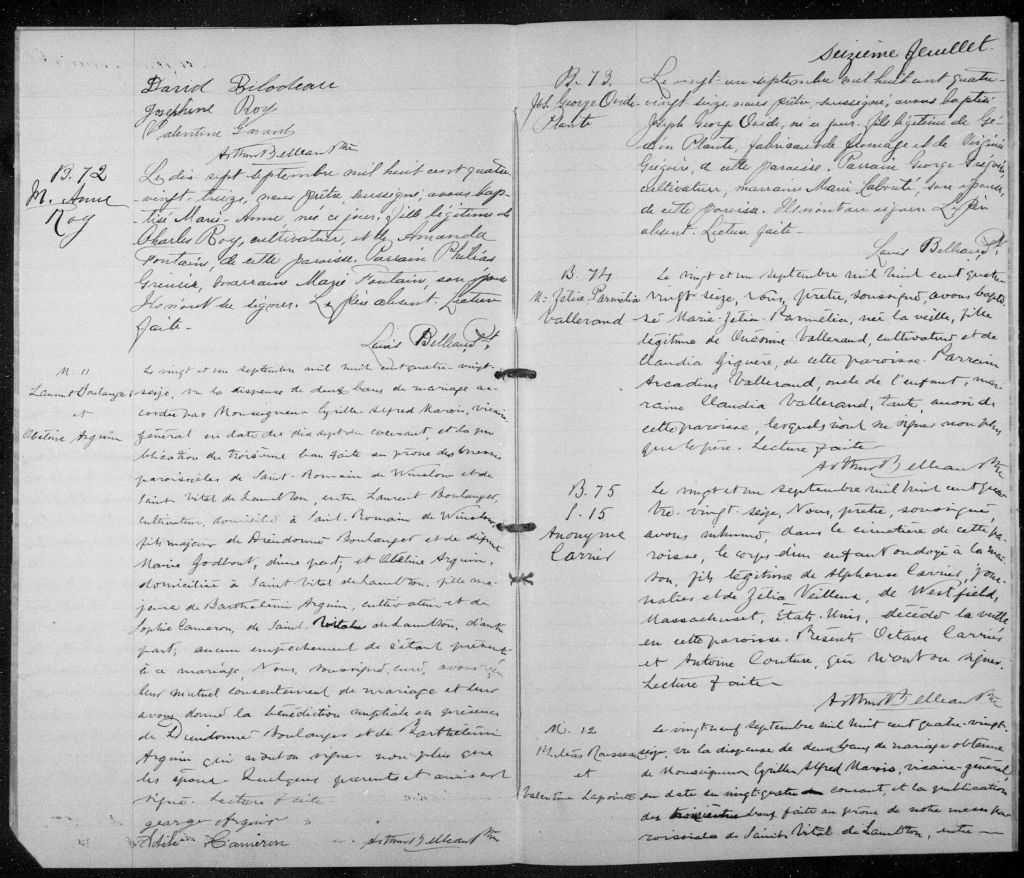 David Bilodeau
Joséphine Roy
Valentine Garant
Arthur Belleau Ptre
B. 72
M. Anne
Roy
Le dix sept septembre mil huit cent quatre
vingt-treize, nous prêtre, soussigné, avons bap
tisé Marie-Anne, née ce jour, fille légitime de
Charles Roy, cultivateur, et de Amanda
Fontain, de cette paroisse. Parrain Philias
Grenier, marraine Marie Fontain, son épouse
Ils n'ont su signer. Le père absent. Lecture
faite.
Louis Belleau, Pt.
M. 11
Laurent Boulanger
et
Obéline Arguin
Le vingt et un septembre mil huit cent quatre vingt-
seize, vu la dispense de deux bans de mariage ac-
cordée par Monseigneur Cyrille Alfred Marois, vicaire
général en date du dix sept du courant, et la pu
blication du troisième ban faite au prône des messes
paroissiales de Saint-Romain de Winslow et de
Saint Vital de Lambton, entre Laurent Boulanger,
cultivateur, domicilié à Saint-Romain de Winslow,
fils majeur de Dieudonné Boulanger et de défunte
Marie Godbout, d'une part, et Obéline Arguin,
domiciliée à Saint Vital de Lambton, fille ma-
jeure de Barthélémi Arguin, cultivateur et de
Sophie Cameron, de Saint Vital de Lambton, d'autre
part; aucun empêchement ne s'étant présenté
à ce mariage, Nous, soussigné, curé, avons
leur mutuel consentement de mariage et leur
avons donné la bénédiction nuptiale en présence
de Dieudonné Boulanger et de Barthélémi
Arguin qui n'ont su signer non plus que
les époux. Quelques parents et amis ont
signé. Lecture faite
George Arguin
Adélé Cameron
Arthur Belleau Ptre
Seizième feuillet.
B. 73
Jph George Ovide
Plante
Le vingt-un septembre mil huit cent quatre-
vingt seize nous prêtre, soussigné, avons baptisé
Joseph George Ovide, né ce jour, fils légitime de Gé
déon Plante, fabricant de fromage et de Virginie
Grégoire, de cette paroisse. Parrain George Grégoire,
cultivateur, marraine Marie Labonté son épouse,
de cette paroisse. Ils n'ont su signer. Le père
absent. Lecture faite.
Louis Belleau, Pt.
B. 74
M. Zélia Parmélia
Vallerand
Le vingt et un septembre mil huit cent quatre
vingt-seize, nous, prêtre, soussigné, avons bapti-
sé Marie-Zélia-Parmélia, née la veille, fille
légitime de Onésime Vallerand, cultivateur et de
Claudia Giguère, de cette paroisse. Parrain
Arcadius Vallerand, oncle de l'enfant, mar-
raine Claudia Vallerand, tante, aussi de
cette paroisse, lesquels n'ont su signer non plus
que le père. Lecture faite
Arthur Belleau Ptre
B. 75
S. 15
Anonyme
Carrier
Le vingt et un septembre mil huit cent qua-
tre-vingt-seize, Nous, prêtre, soussigné,
avons inhumé, dans le cimetière de cette pa-
roisse, le corps d'un enfant ondoyé à la mai
son, fils légitime de Alphonse Carrier, jour-
nalier et de Zélia Veilleux, de Westfield,
Massachuset, États-Unis, décédé la veille
en cette paroisse. Présents Octave Carrier
et Antoine Couture, qui n'ont su signer.
Lecture faite
Arthur Belleau Ptre
M. 12
et
Valentine Lapointe
Le vingt neuf septembre mil huit cent quatre-vingt-
seize, vu la dispense de deux bans de mariage obtenue
de Monseigneur Cyrille Alfred Marois, vicaire-général,
en date du vingt-quatre du courant, et la publication
du troisième ban faite au prône de notre messe pa-
roissiale de Saint Vital de Lambton, entre